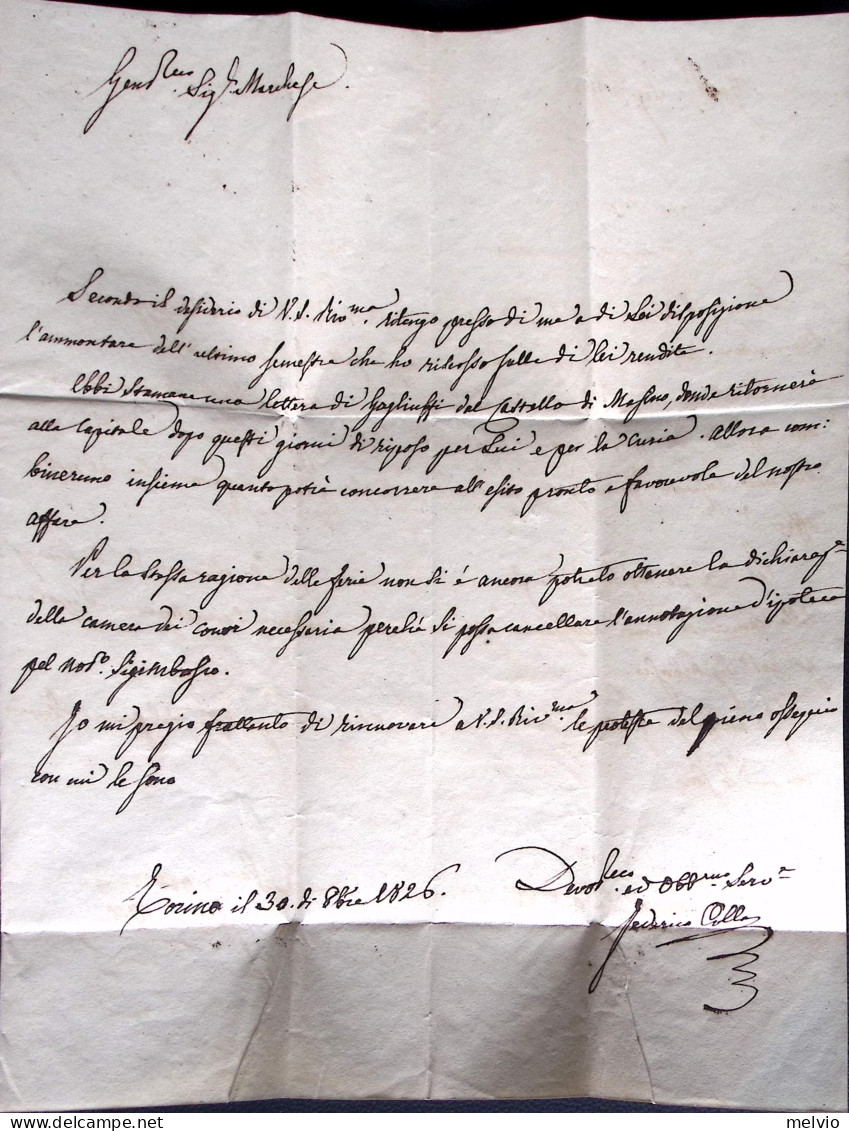 Sig.r Marchese.
Secondo il desiderio di V. S. Riv.ma ritengo presso di me a di Lei disposizione
l'ammontare dell'ultimo semestre che ho riscosso sulle di lei rendite.
Ebbi stamane una lettera di Gagliuffi dal Castello di Masino, donde ritornerà
alla Capitale dopo questi giorni di riposo per Lui e per la Curia. Allora com:
bineremo insieme quanto potrà concorrere all'esito pronto e favorevole del nostro
affare.
Per la stessa ragione delle ferie non si é ancora potuto ottenere la dichiaraz.e
della camera dei conti necessaria perchè si possa cancellare l'annotazione d'ipoteca
pel
Io mi pregio frattanto di rinnovare a V. S. Riv.ma le proteste del pieno ossequio
con cui le sono
Torino il 30. di 8bre 1826.
Devot. ed Obb.mo Serv.e
Federico Colla
melvio